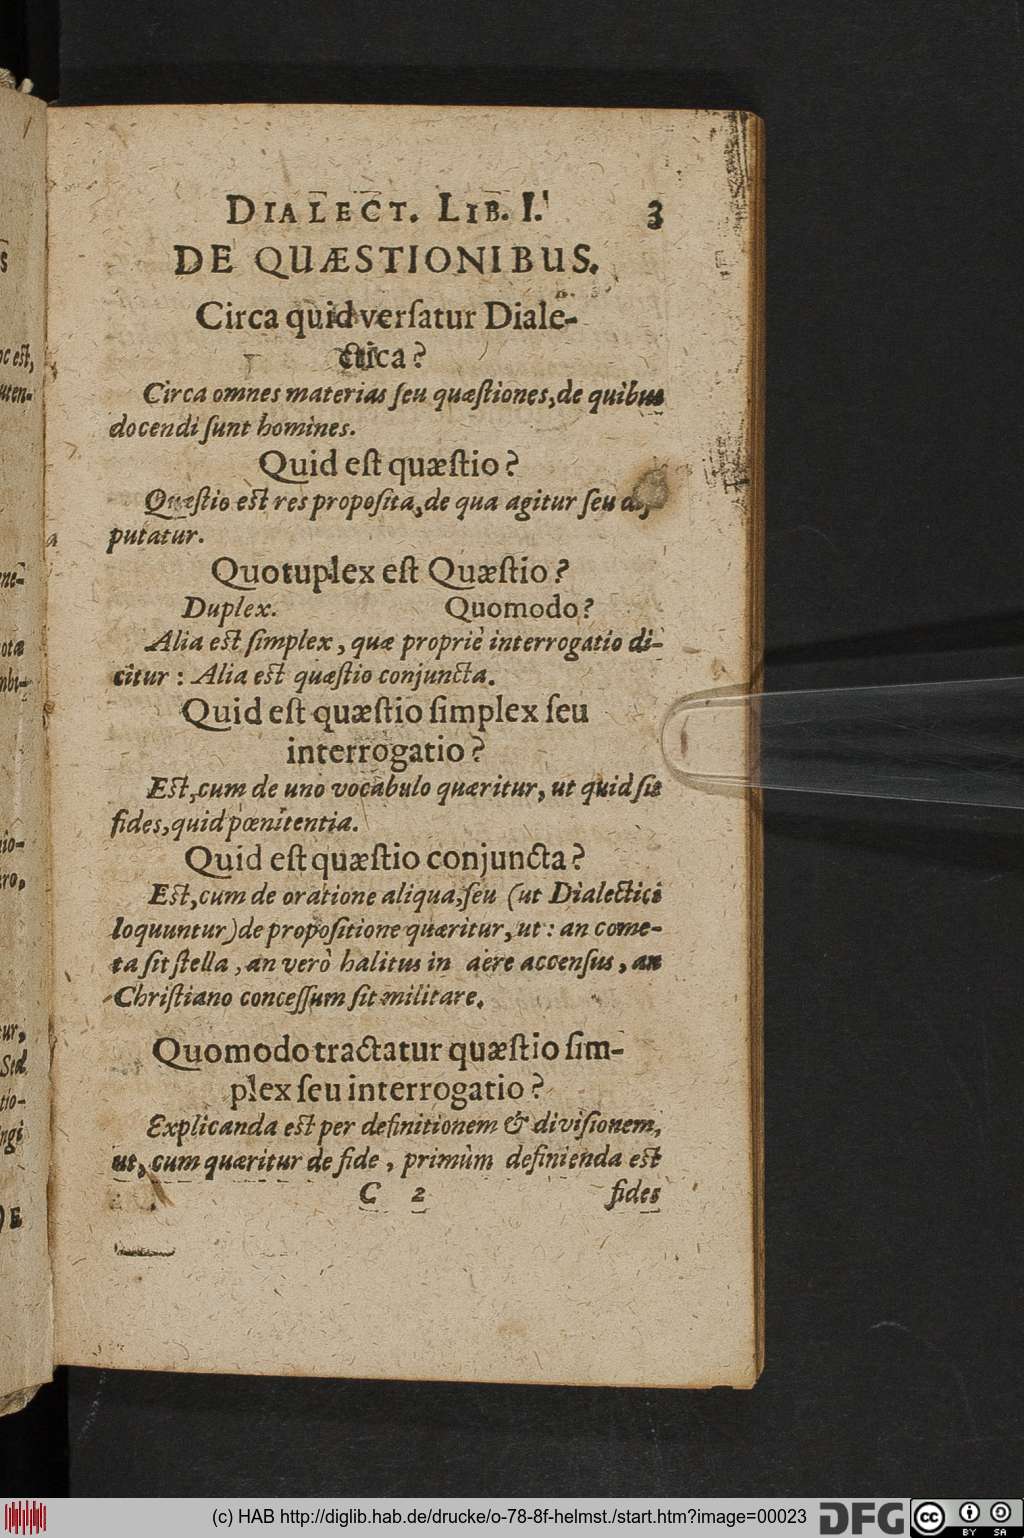 DIALECT. LIB. I. 3
DE QUÆSTIONIBUS.
Circa quid versatur Diale-
ctica?
Circa omnes materias seu quæstiones, de quibus
docendi sunt homines.
Quid est quæstio?
Quæstio est res proposita, de qua agitur seu dis-
putatur.
Quotuplex est Quæstio?
Duplex. Quomodo?
Alia est simplex, quæ propriè interrogatio di-
citur: Alia est quæstio conjuncta.
Quid est quæstio simplex seu
interrogatio?
Est, cum de uno vocabulo quæritur, ut quid sit
fides, quid pœnitentia.
Quid est quæstio conjuncta?
Est, cum de oratione aliqua, seu (ut Dialectici
loquuntur) de propositione quæritur, ut: an come-
ta sit stella, an verò halitus in aëre accensus, an
Christiano concessum sit militare.
Quomodo tractatur quæstio sim-
plex seu interrogatio?
Explicanda est per definitionem & divisionem,
ut, cum quæritur de fide, primùm definienda est
C 2 fides
(c) HAB http://diglib.hab.de/drucke/o-78-8f-helmst./start.htm?image=00023
DFG
cc BY SA